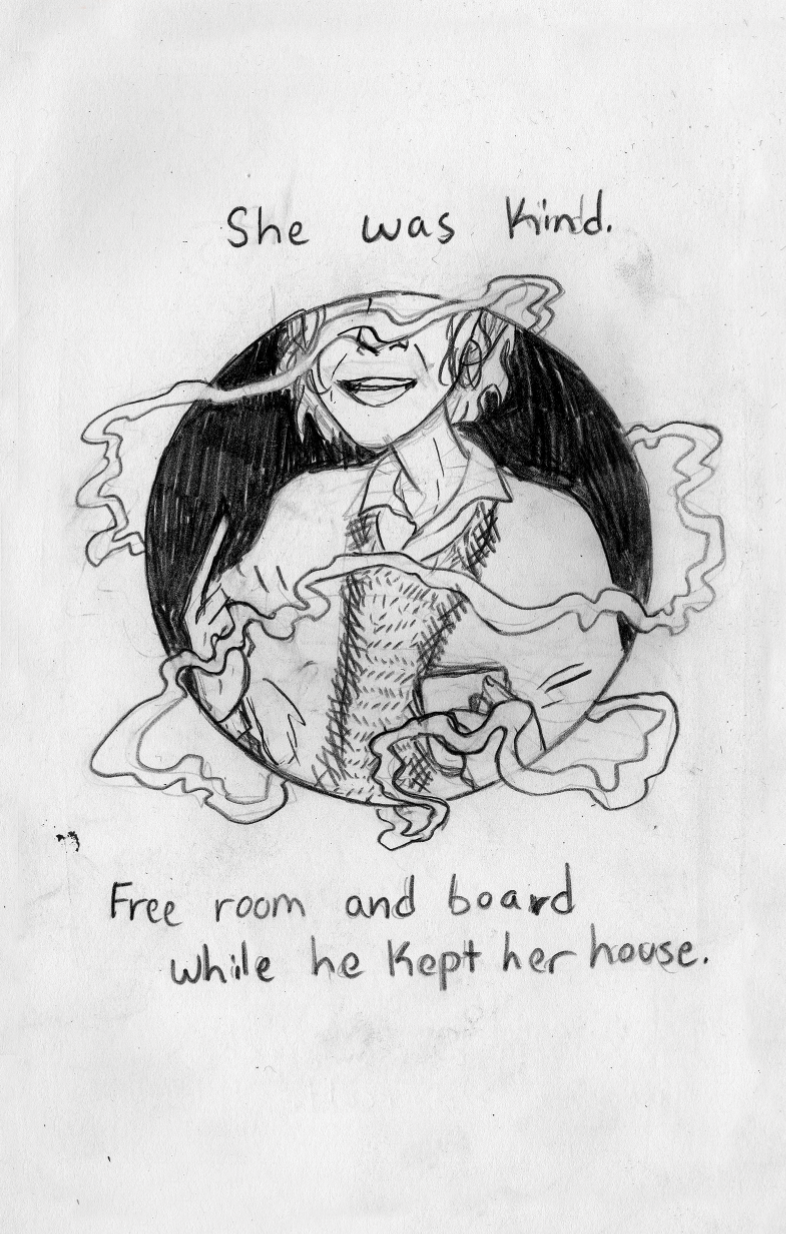 She was kind.
Free room and board
while he kept her house.